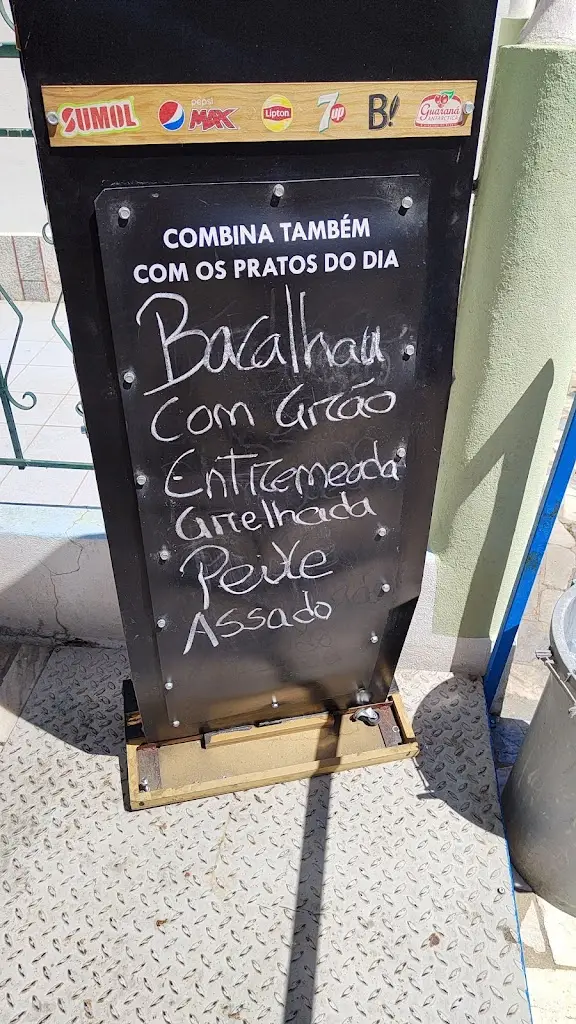 SUMOL pepsi MAX Lipton 7up B! Guaraná ANTARCTICA
COMBINA TAMBÉM
COM OS PRATOS DO DIA
Bacalhau
Com Grão
Entremeada
Grelhada
Peixe
Assado